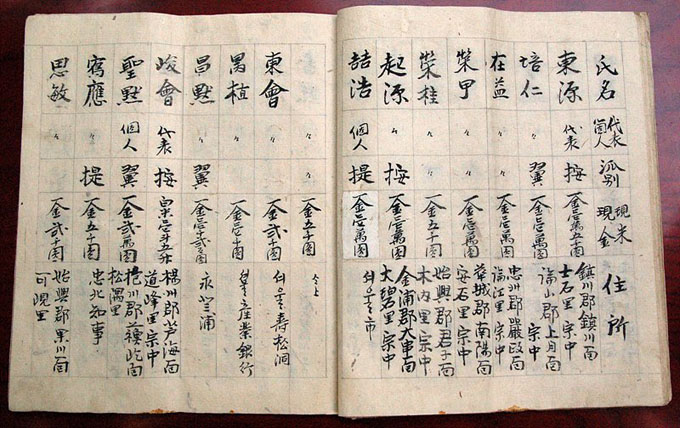 氏名 代表 個人 派別 現米 現金 住所
東源 代表 按 一金壱萬五千圓 鎮川郡鎮川面
士石里 宗中
培仁 〃 翼 一金壱萬圓 論山郡上月面
宗中
在益 〃 〃 一金壱萬圓 忠州郡嚴政面
論江里 宗中
榮甲 〃 〃 一金壱萬圓 華城郡南陽面
安石里 宗中
榮桂 〃 〃 一金壱萬圓 始興郡君子面
木内里 宗中
起源 〃 按 一金壱萬圓 金浦郡大串面
大碧里 宗中
喆浩 個人 提 一金壱萬圓 서울市
〃 〃 一金五千圓 仝上
東會 〃 〃 一金壱萬圓 서울壽松洞
禺植 〃 〃 一金壱千圓 서울産業銀行
昌黙 〃 翼 圓 永登浦
峻會 代表 按 白米壱斗五升 楊州郡芦海面
道峰里 宗中
聖黙 個人 翼 一金貳萬圓 郡 面
松隅里
寯應 〃 提 一金五千圓 忠北知事
思敏 〃 〃 一金貳千圓 始興郡果川面
里